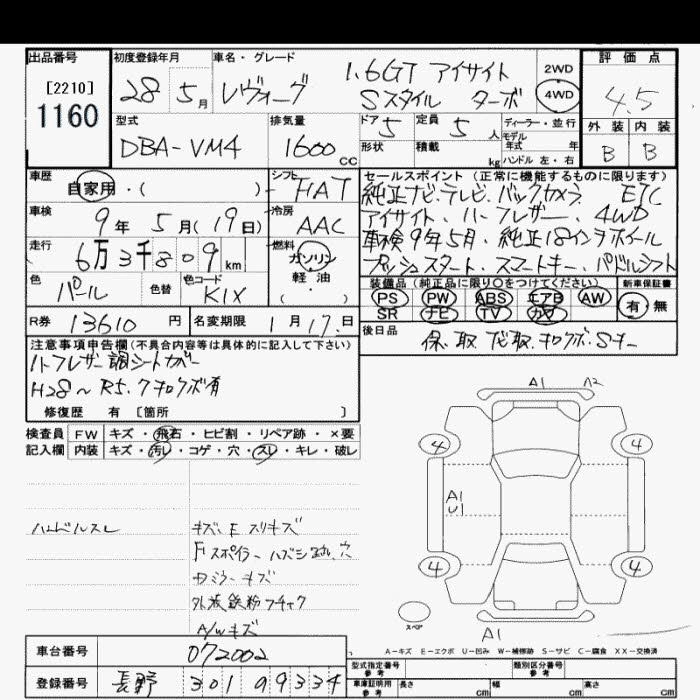 出品番号
[2210]
1160
初度登録年月
28 5月
車名・グレード
レヴォーグ
1.6GT アイサイト
Sスタイル ターボ
2WD
4WD
評価点
4.5
外装 内装
B B
型式
DBA-VM4
排気量
1600 CC
ドア 5
定員 5人
形状
積載 kg
ディーラー・並行
モデル
年式 年
ハンドル 左・右
車歴
自家用・( )
シフト
FAT
車検
9年 5月(19日)
冷房
AAC
走行
6万3千809km
燃料
ガソリン
軽油
( )
色
パール
色替
色コード
K1X
セールスポイント(正常に機能するものに限ります)
純正ナビ、テレビ、バックカメラ、ETC
アイサイト、ハーフレザー、4WD
車検9年5月、純正18インチホイール
プッシュスタート、スマートキー、パドルシフト
装備品(純正品に限り○をつけてください)
PS PW ABS エアB AW
SR ナビ TV カワ
新車保証書
有・無
R券 13610円
名変期限 1月17日
後日品
保、取、ナビ取、キロクボ、Sキー
注意事項申告欄(不具合内容等は具体的に記入して下さい)
ハーフレザー調シートカバー
H28~R5.7キロクボ有
修復歴 有 [箇所 ]
検査員
記入欄
FW キズ・飛石・ヒビ割・リペア跡・×要
内装 キズ・汚レ・コゲ・穴・スレ・キレ・破レ
ハンドルスレ
キズ、E スリキズ
Fスポイラーハズシ跡、穴
ミラーキズ
外板鉄粉フチャク
A/Wキズ
A1 A2
4 4
A1
U1
4 4
スペア
A1
A-キズ E-エクボ U-凹み W-補修跡 S-サビ C-腐食 XX-交換済
車台番号
072002
登録番号
長野 301 0 9334
型式指定番号
参考
類別区分番号
参考
車庫証明用
参考
長さ cm
幅 cm
高さ cm